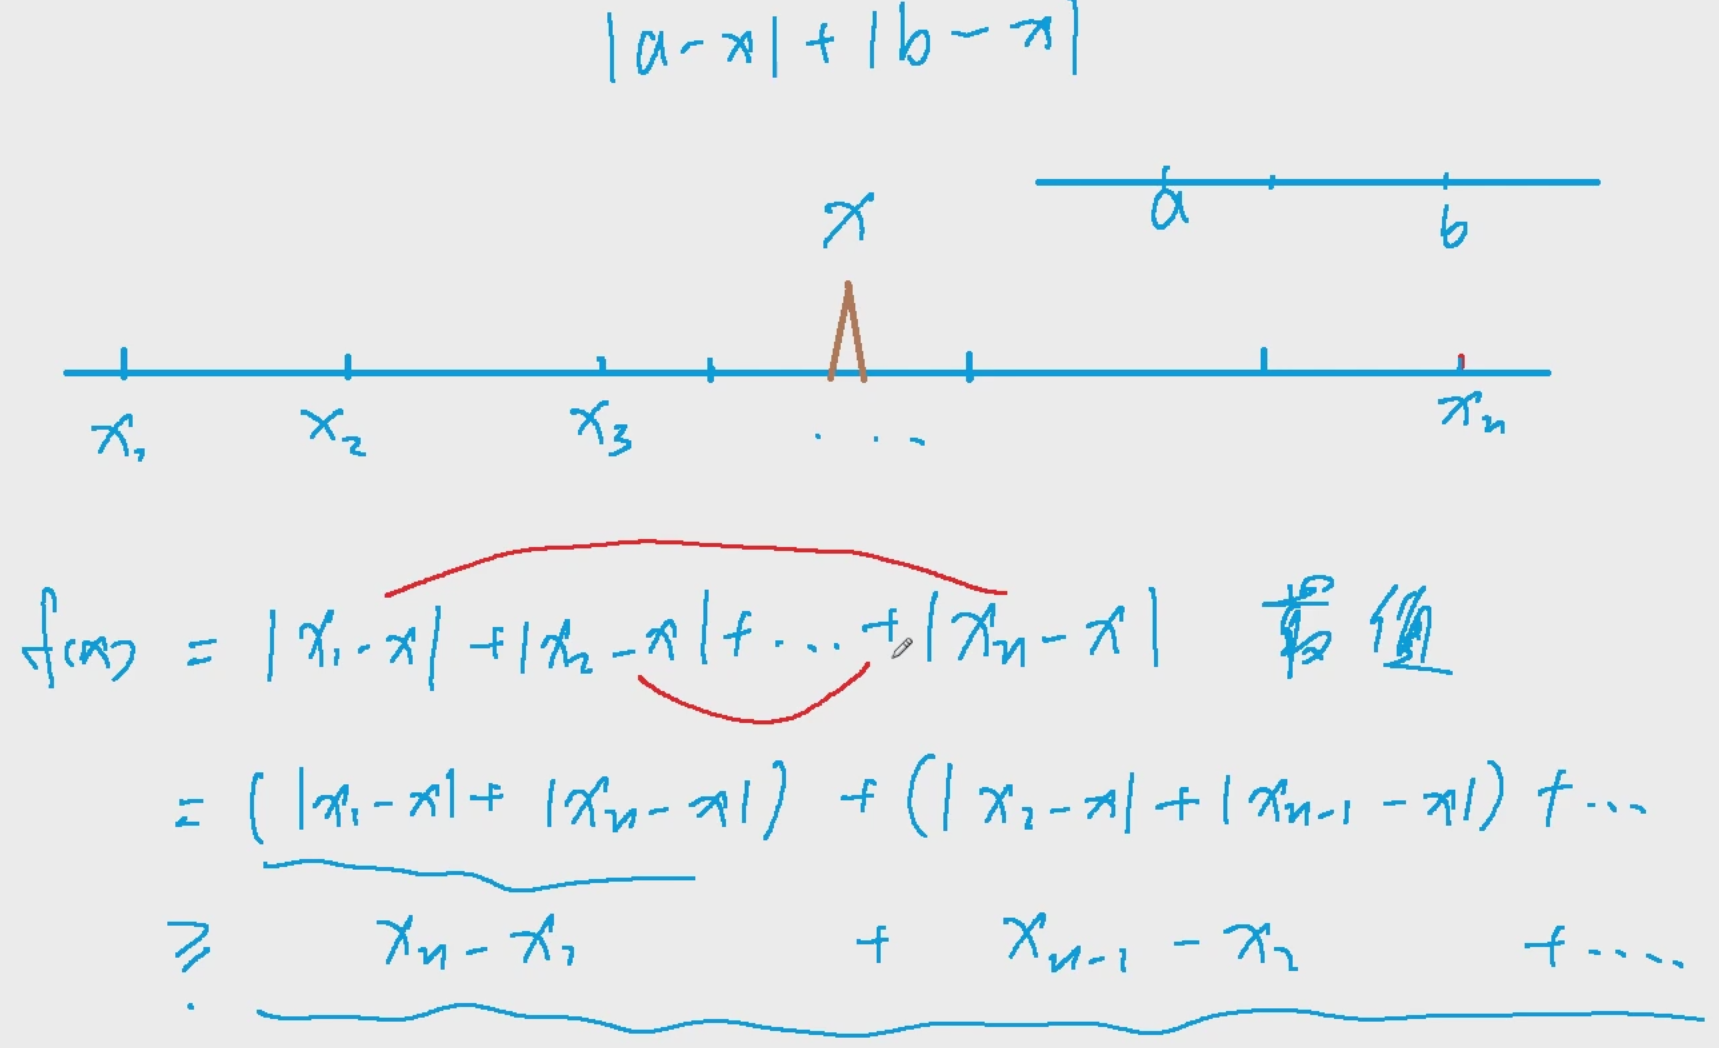 |a-x|+|b-x|
a b
x
x₁ x₂ x₃ ... xₙ
f(x) = |x₁-x|+|x₂-x|+...+|xₙ-x| 最值
=(|x₁-x|+|xₙ-x|)+(|x₂-x|+|xₙ₋₁-x|)+...
≥ xₙ-x₁ + xₙ₋₁-x₂ +....